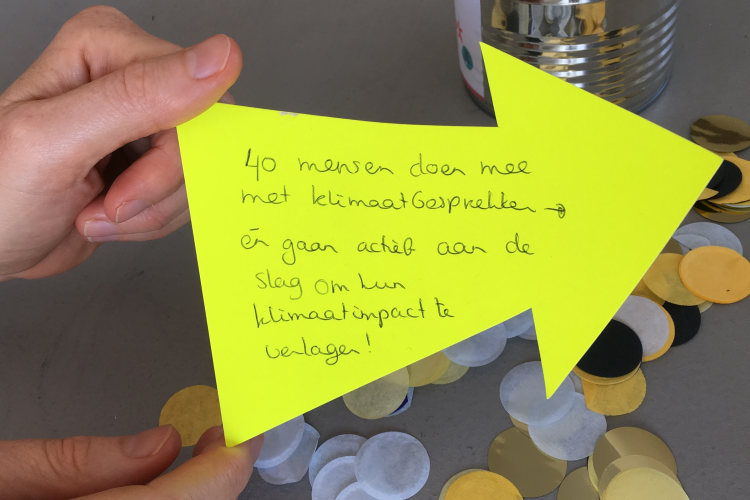 40 mensen doen mee
met klimaatGesprekken →
én gaan actief aan de
slag om hun
klimaatimpact te
verlagen!